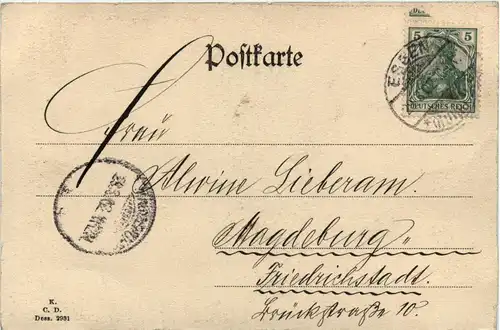 Postkarte
5 5
DEUTSCHES REICH
ESSEN
Frau
Alwine Lieberam.
Magdeburg
Friedrichstadt.
Brückstraße 10.
K.
C. D.
Dess. 2981